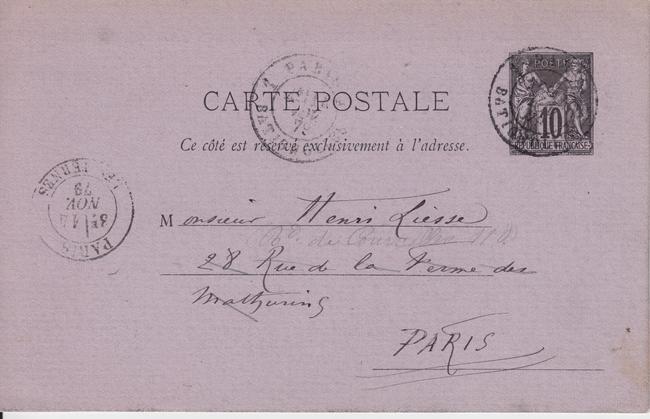 CARTE POSTALE
Ce côté est réservé exclusivement à l'adresse.
POSTE
10
REPUBLIQUE FRANÇAISE
PARIS
NOV.
79
PARIS
Monsieur Henri Liesse
Bd. de Courcelles
28 Rue de la Ferme des
Mathurins
PARIS